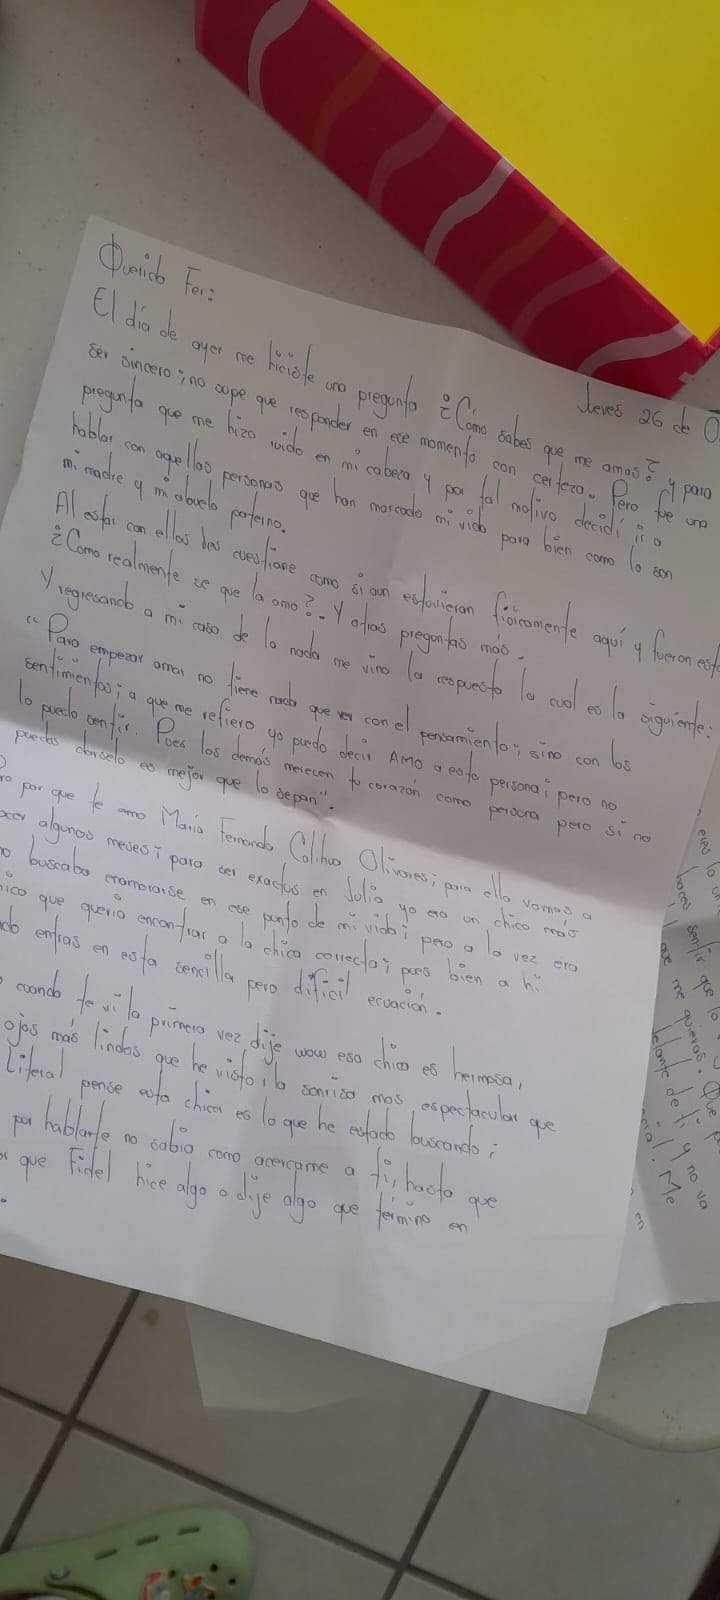 Jueves 26 de O
Querida Fer:
El día de ayer me hiciste una pregunta ¿Cómo sabes que me amas? y para
ser sincero; no supe que responder en ese momento con certeza. Pero fue una
pregunta que me hizo ruido en mi cabeza y por tal motivo decidí ir a
hablar con aquellas personas que han marcado mi vida para bien como lo son
mi madre y mi abuelo paterno.
Al estar con ellos les cuestione como si aun estuvieran fisicamente aquí y fueron est
¿Como realmente se que la amo?. Y otras preguntas más.
Y regresando a mi casa de la nada me vino la respuesta la cual es la siguiente:
"Para empezar amar no tiene nada que ver con el pensamiento; sino con los
sentimientos; a que me refiero yo puedo decir AMO a esta persona; pero no
lo puedo sentir. Pues los demás merecen tu corazón como persona pero si no
puedes darselo es mejor que lo sepan".
ro por que te amo María Fernanda Olivares; para ello vamos a
cer algunos meses; para ser exactos en Julio yo era un chico más
o buscaba enamorarse en ese punto de mi vida; pero a la vez era
ico que quería encontrar a la chica correcta; pues bien a hi
do entras en esta sencilla pero dificil ecuación.
cuando te vi la primera vez dije wow esa chica es hermosa,
ojos más lindos que he visto, la sonrisa mas espectacular que
Literal pense esta chica es lo que he estado buscando;
por hablarte no sabia como acercame a ti, hasta que
que Fidel hice algo o dije algo que término en
eres lo
haces sentir que lo
me quieras. Que
delante de ti y no va
Me